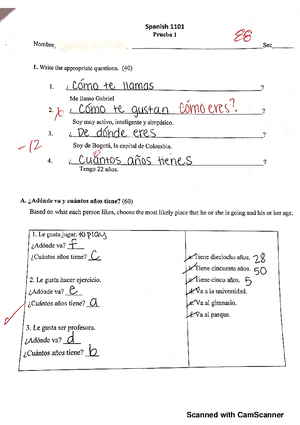 Spanish 1101
Prueba 1
88
Nombre Sec
1. Write the appropriate questions. (40)
1. ¿Cómo te llamas?
Me llamo Gabriel
2. ¿Cómo te gustan Cómo eres?
Soy muy activo, inteligente y simpático.
3. ¿De dónde eres?
-12
Soy de Bogotá, la capital de Colombia.
4. ¿Cuántos años tienes?
Tengo 22 años.
A. ¿Adónde va y cuántos años tiene? (60)
Based on what each person likes, choose the most likely place that he or she is going and his or her age.
1. Le gusta jugar. to play
¿Adónde va? f
¿Cuántos años tiene? c
2. Le gusta hacer ejercicio.
¿Adónde va? e
¿Cuántos años tiene? a
3. Le gusta ser profesora.
¿Adónde va? d
¿Cuántos años tiene? b
a. Tiene dieciocho años. 28
b. Tiene cincuenta años. 50
c. Tiene cinco años. 5
d. Va a la universidad.
e. Va al gimnasio.
f. Va al parque.
Scanned with CamScanner